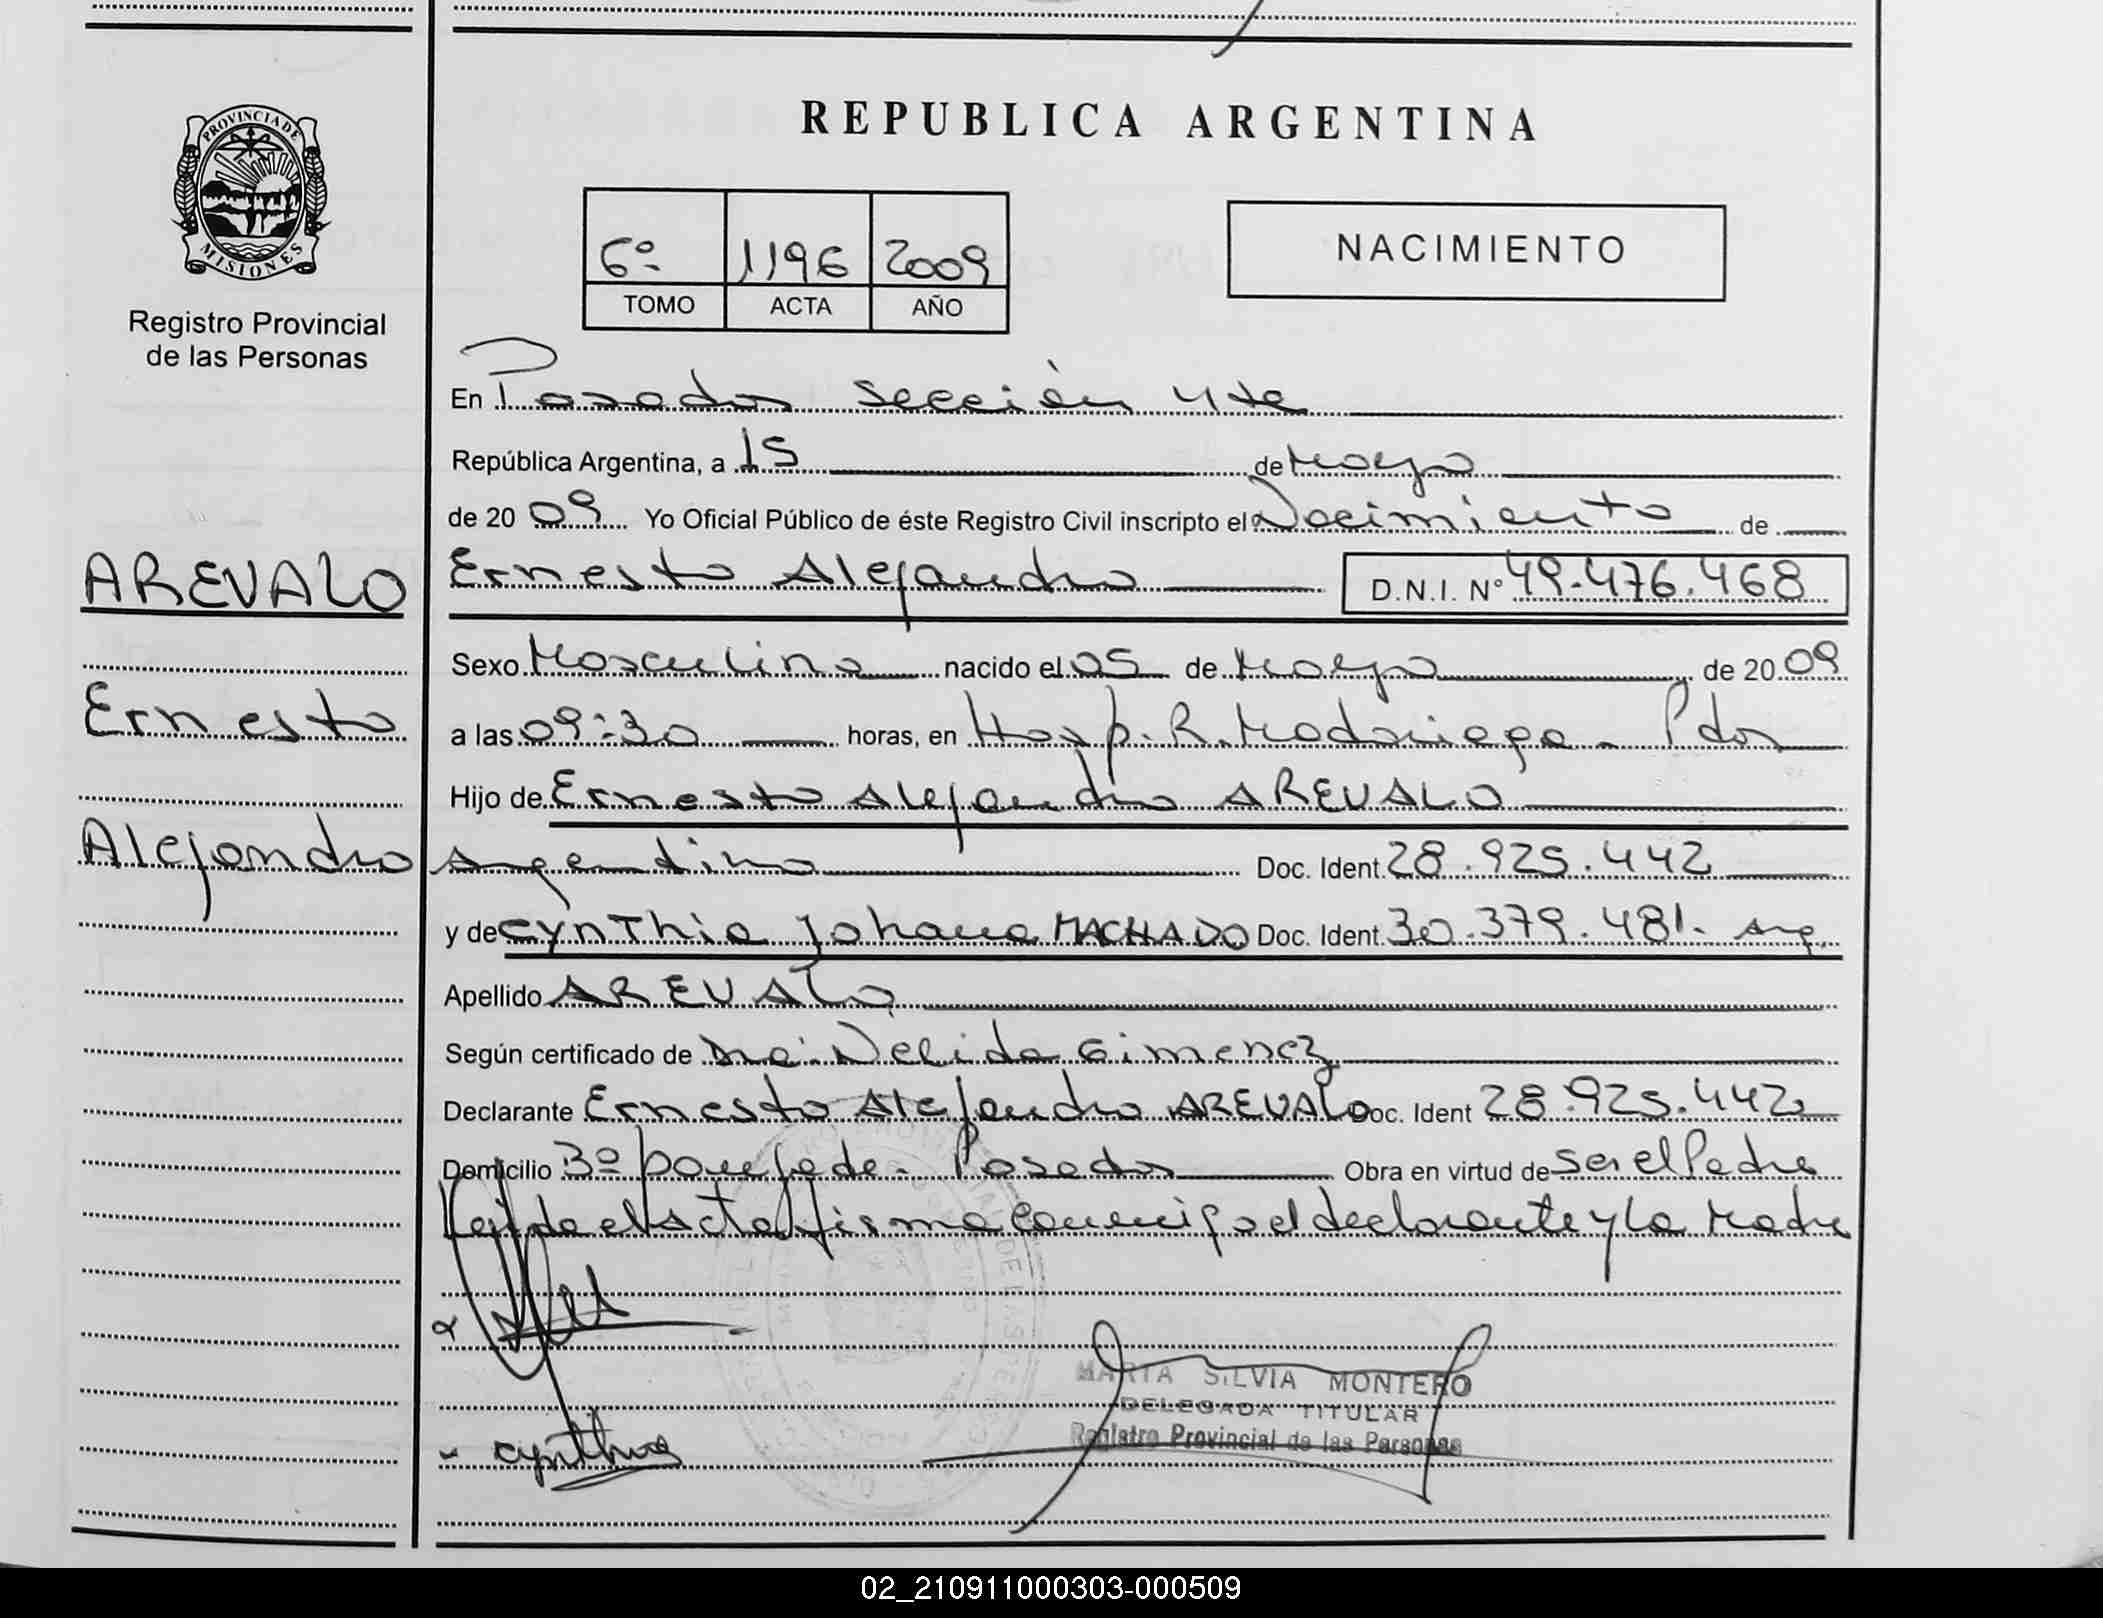 REPUBLICA ARGENTINA
PROVINCIA DE
MISIONES
Registro Provincial
de las Personas
6º 1196 2009
TOMO ACTA AÑO
NACIMIENTO
En Posadas Sección 4ta
República Argentina, a 15 de Mayo
de 2009 Yo Oficial Público de éste Registro Civil inscripto el Nacimiento de
AREVALO
Ernesto
Alejandro
Ernesto Alejandro D.N.I. Nº 49.476.468
Sexo Masculino nacido el 05 de Mayo de 2009
a las 09:30 horas, en Hosp. R. Madariaga - Pdas
Hijo de Ernesto Alejandro AREVALO
Argentino Doc. Ident. 28.925.442
y de Cynthia Johana MACHADO Doc. Ident. 30.379.481. Arg.
Apellido AREVALO
Según certificado de Dra. Nelida Gimenez
Declarante Ernesto Alejandro AREVALO Doc. Ident 28.925.442
Domicilio 3º Posadas Obra en virtud de ser el Padre
el Acta firma conmigo el declarante y la Madre
Cynthia
MARTA SILVIA MONTERO
DELEGADA TITULAR
Registro Provincial de las Personas
02_210911000303-000509